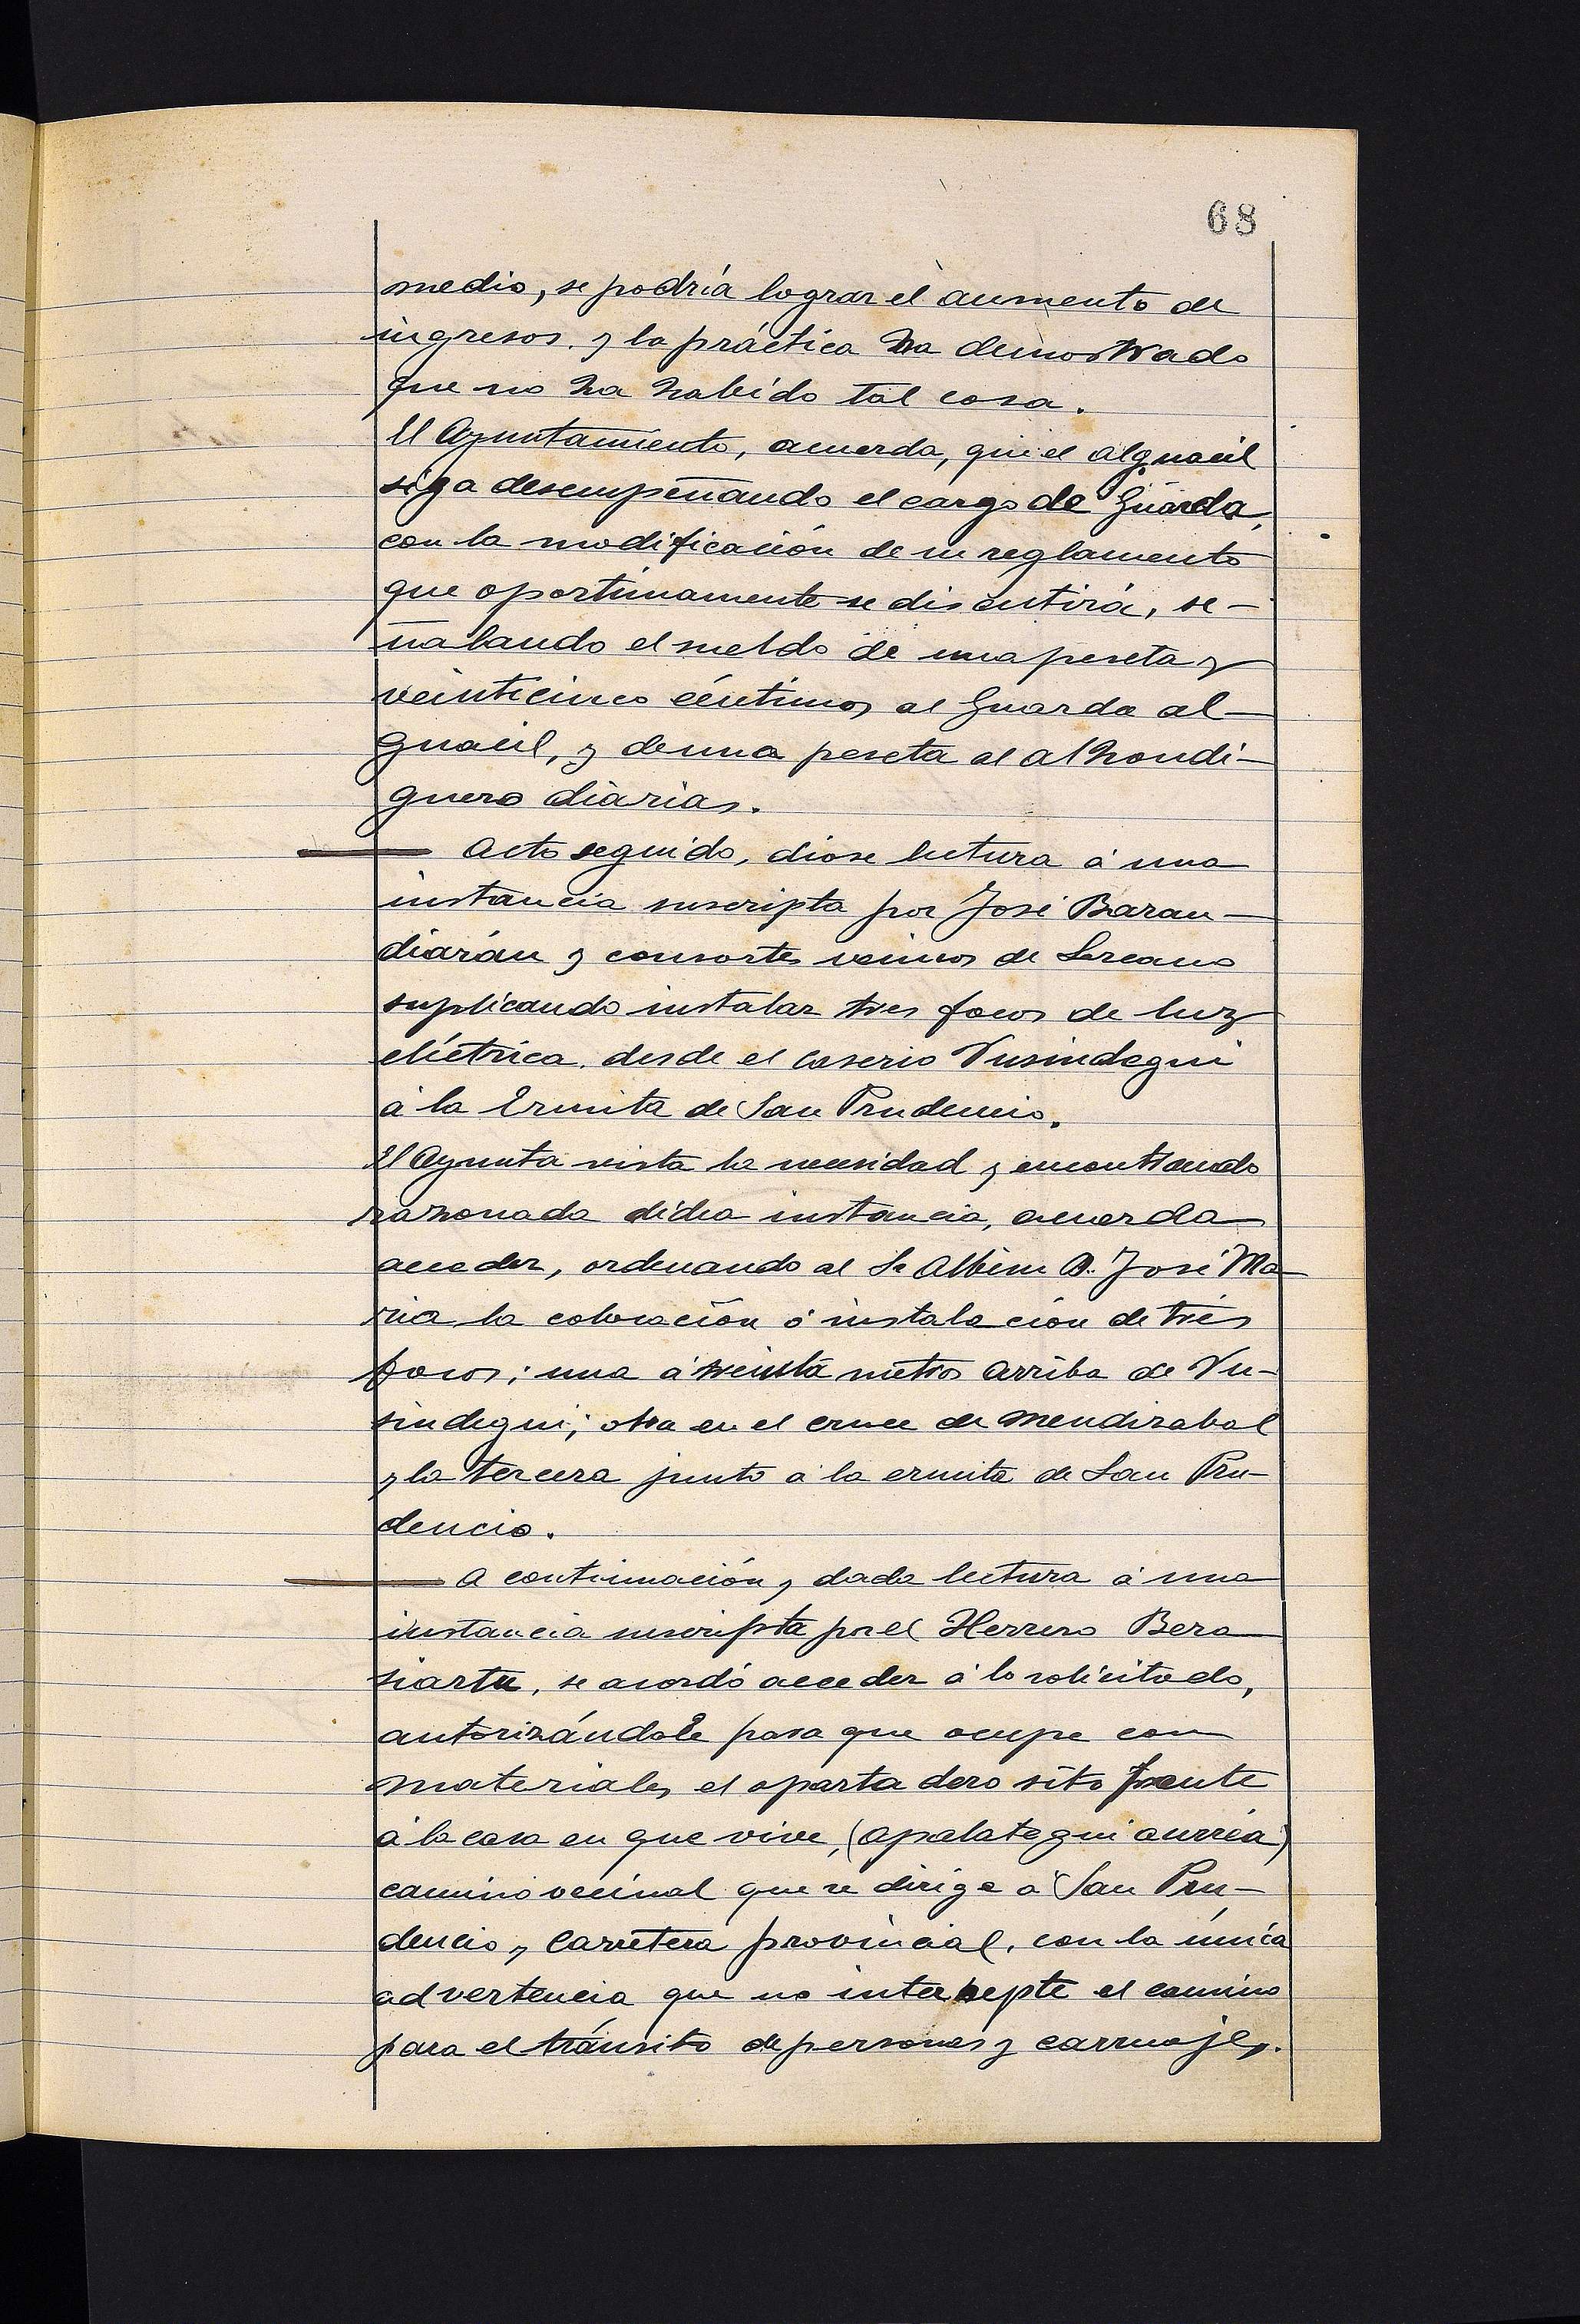 68
medio, se podría lograr el aumento de
ingresos. y la práctica ha demostrado
que no ha habido tal cosa.
El Ayuntamiento, acuerda, que el alguacil
siga desempeñando el cargo de Guarda,
con la modificación de su reglamento
que oportunamente se discutirá, se-
ñalando el sueldo de una peseta y
veinticinco céntimos al Guarda al-
guacil, y de una peseta al alhondi-
guero diarias.
— Acto seguido, diose lectura á una
instancia suscripta por José Baran-
diarán y consortes vecinos de Lazcano
suplicando instalar tres focos de luz
eléctrica. desde el caserio Vusindegui
á la Ermita de San Prudencio.
El Ayunta vista la necesidad y encontrando
razonada dicha instancia, acuerda
acceder, ordenando al Sr Albisu D. José Ma-
ria la colocación ó instalación de tres
focos; una á treinta metros arriba de Vu-
sindegui; otra en el cruce de Mendizabal
y la tercera junto á la ermita de San Pru-
dencio.
— A continuación, dada lectura á una
instancia suscripta por el Herrero Bera
siartu, se acordó acceder á lo solicitado,
autorizándole para que ocupe con
materiales el apartadero sito frente
á la casa en que vive, (Apalategui aurrea)
camino vecinal que se dirige á San Pru-
dencio, y carretera provincial, con la única
advertencia que no intercepte el camino
para el tránsito de personas y carruajes.